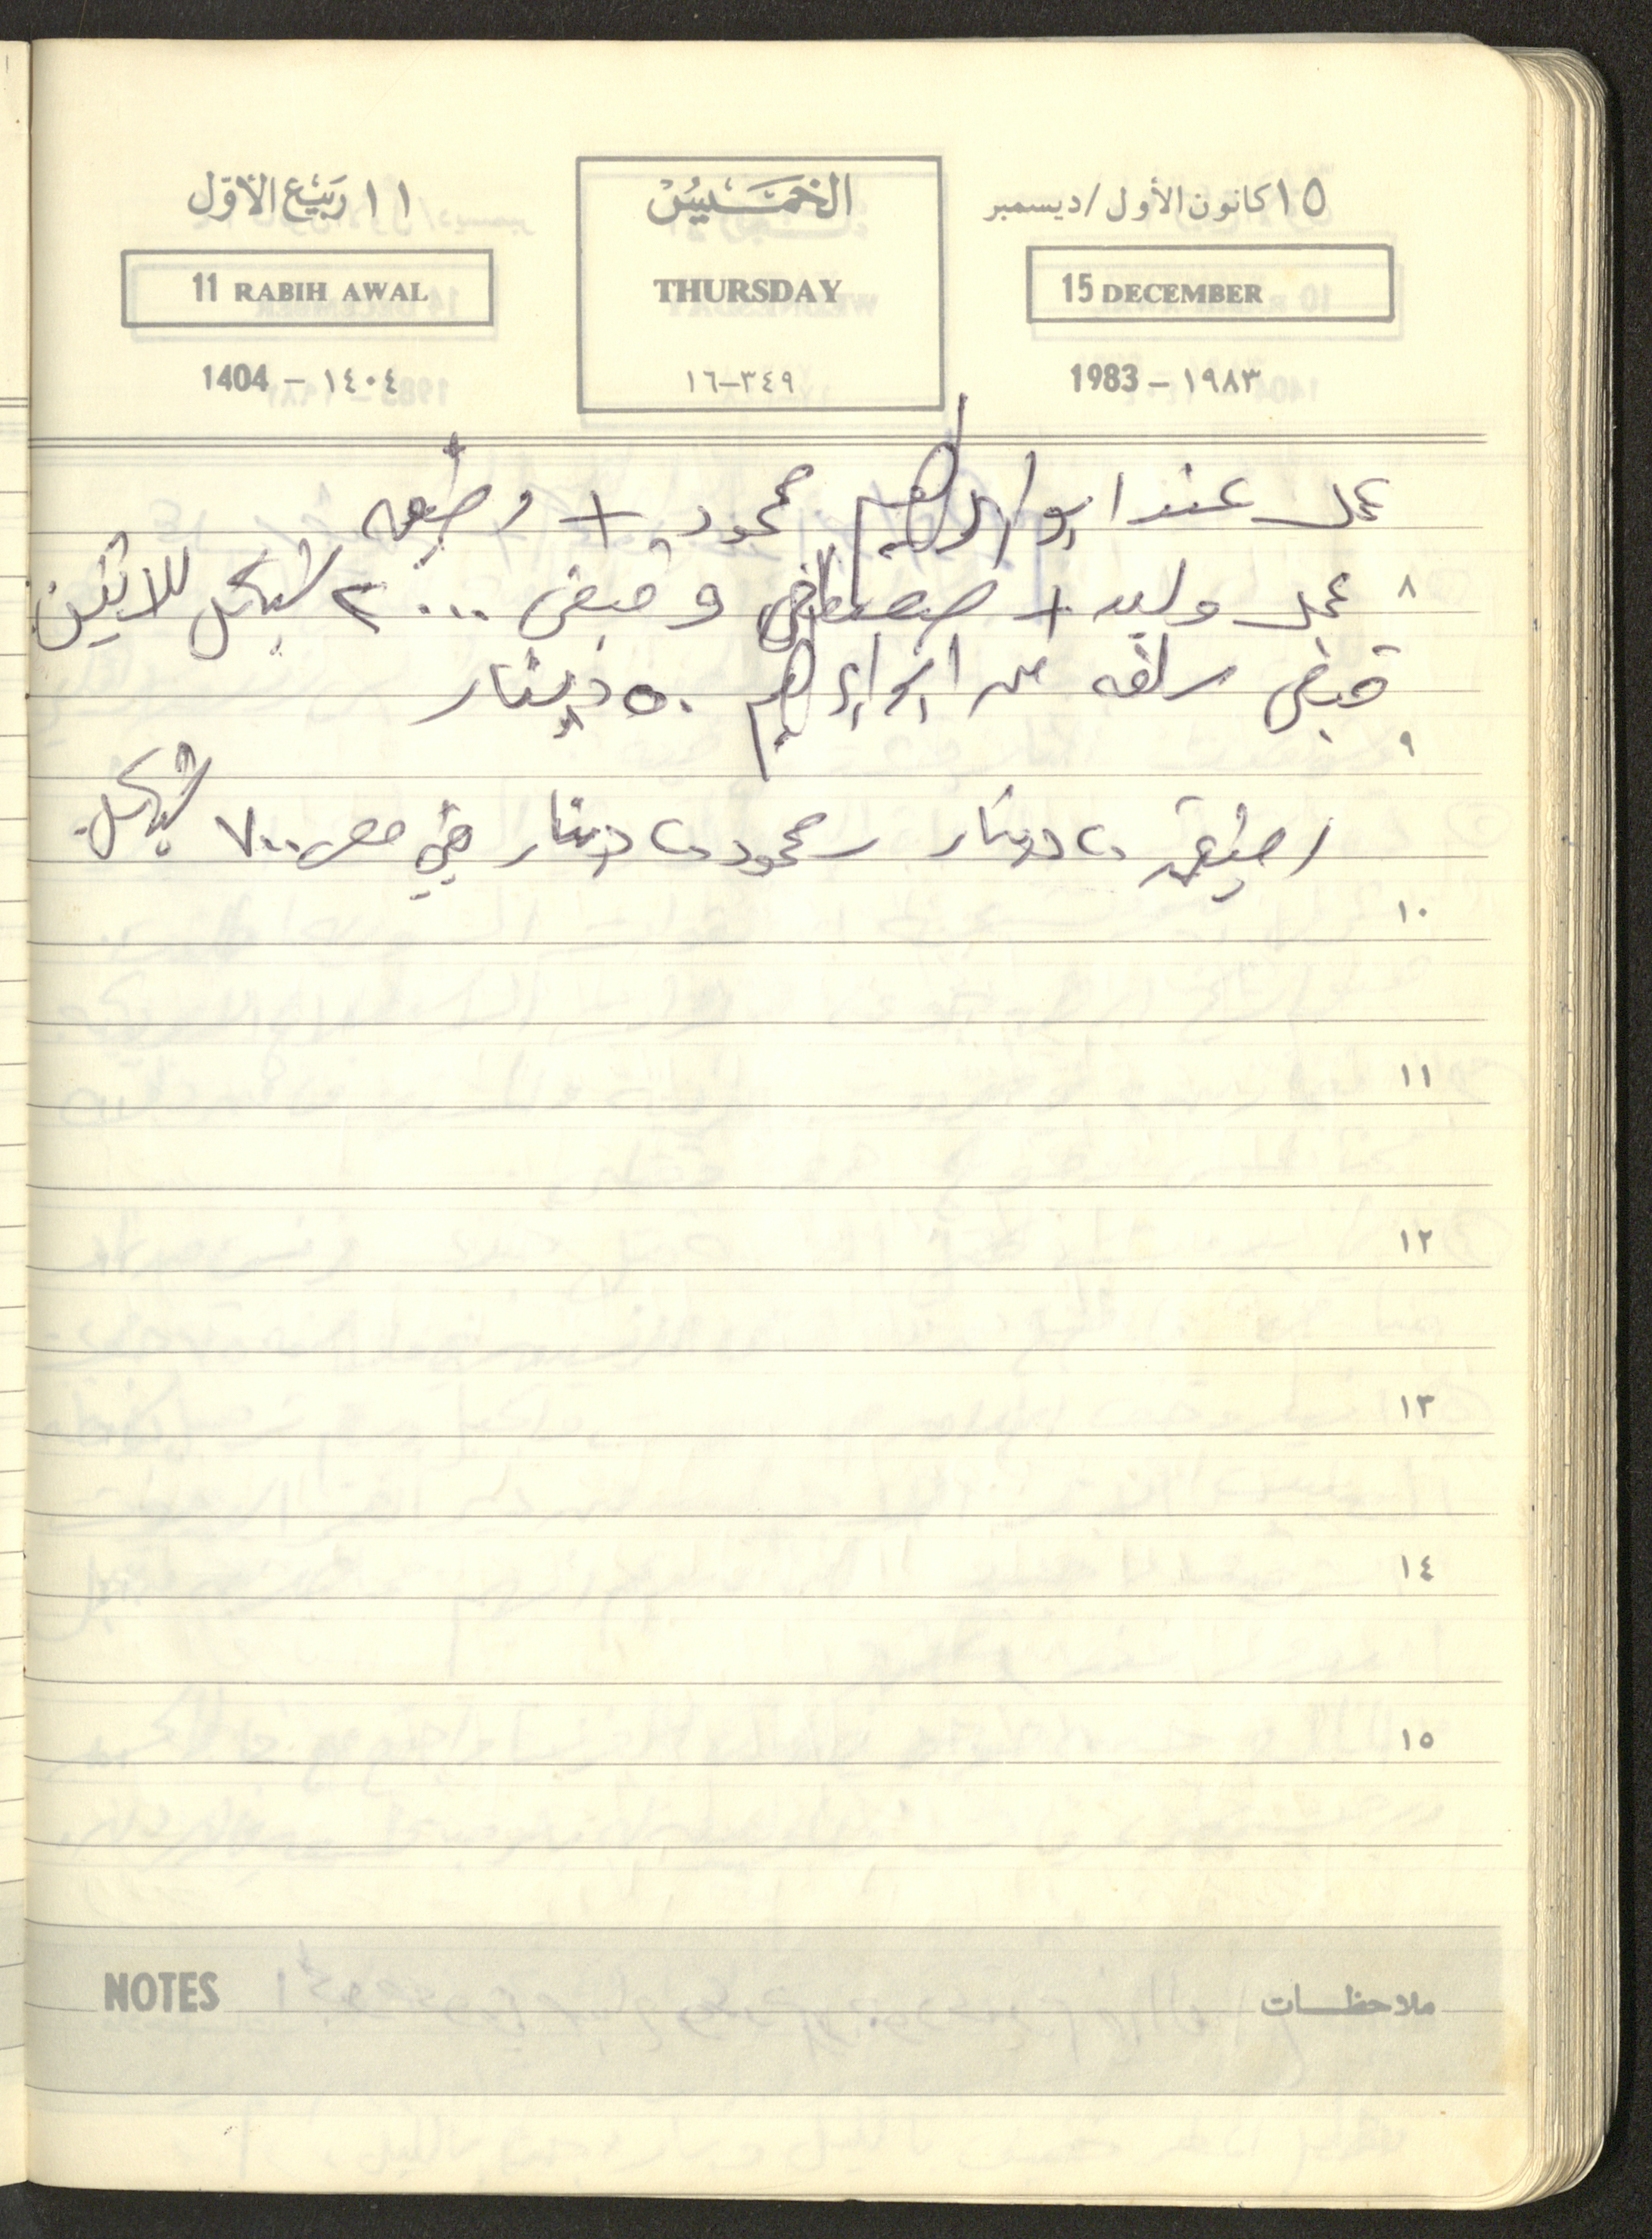 ١٥ كانون الأول/ديسمبر
15 DECEMBER
1983 - ١٩٨٣
الخميس
THURSDAY
٣٤٩-١٦
١١ ربيع الأول
11 RABIH AWAL
1404 - ١٤٠٤
عمل عند ابو ابراهيم محمود +
٨ عمل وليد + مصطفى و قبض ٢٠٠٠ شيكل للاثنين
قبض سلفه من ابو ابراهيم ٥٠ دينار
٩
٢٠ دينار محمود ٢٠ دينار ٧٠٠ شيكل
١٠
١١
١٢
١٣
١٤
١٥
ملاحظات
NOTES